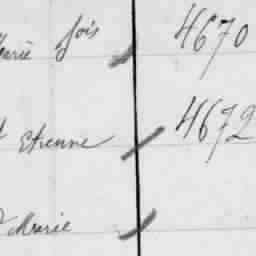 Marie fois 4670
t Etienne 4672
Marie